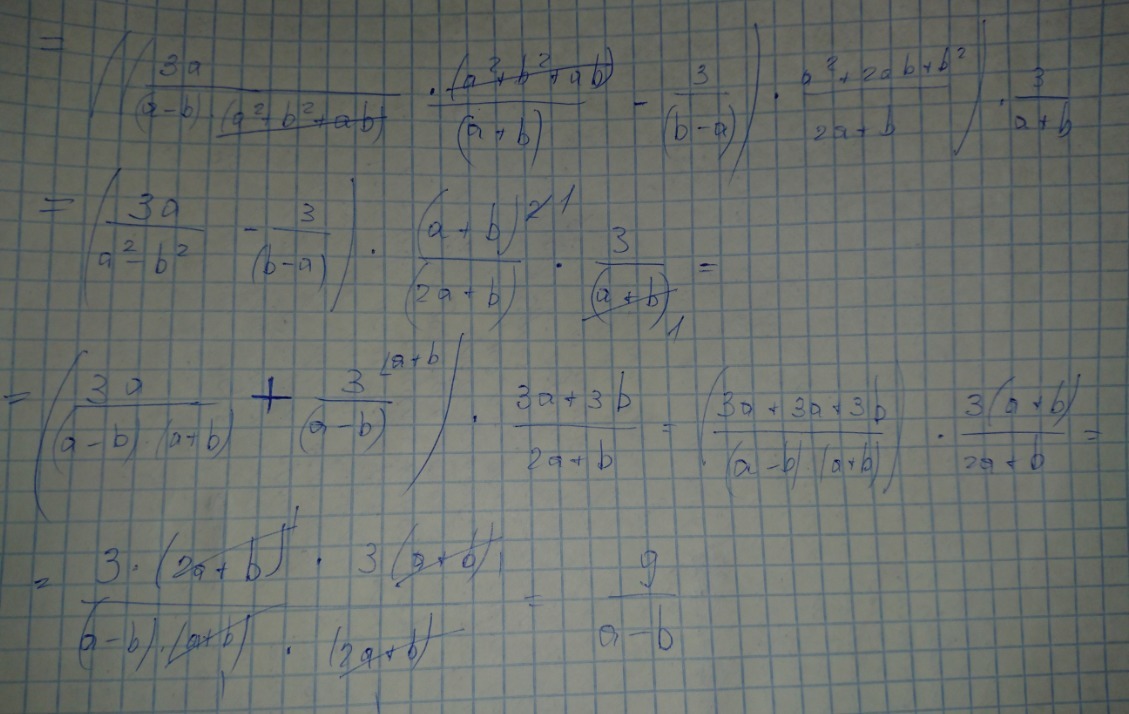 = ((3a/((a-b)·(a²+b²+ab)) · (a²+b²+ab)/(a+b) - 3/(b-a)) · (a²+2ab+b²)/(2a+b)) · 3/(a+b)
= (3a/(a²-b²) - 3/(b-a)) · (a+b)²1/(2a+b) · 3/(a+b)1 =
= (3a/((a-b)·(a+b)) + 3(a+b/(a-b)) · (3a+3b)/(2a+b) = ((3a+3a+3b)/((a-b)(a+b))) · 3(a+b)/(2a+b) =
= 3·(2a+b)1 · 3(a+b)1/((a-b)·(a+b)1 · (2a+b)1) = 9/(a-b)